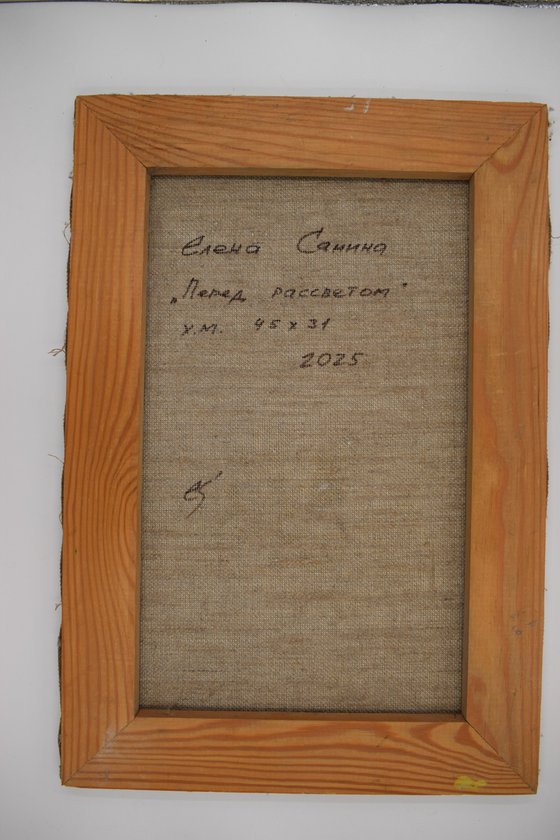 Елена Санина
„Перед рассветом"
х.м. 45 х 31
2025